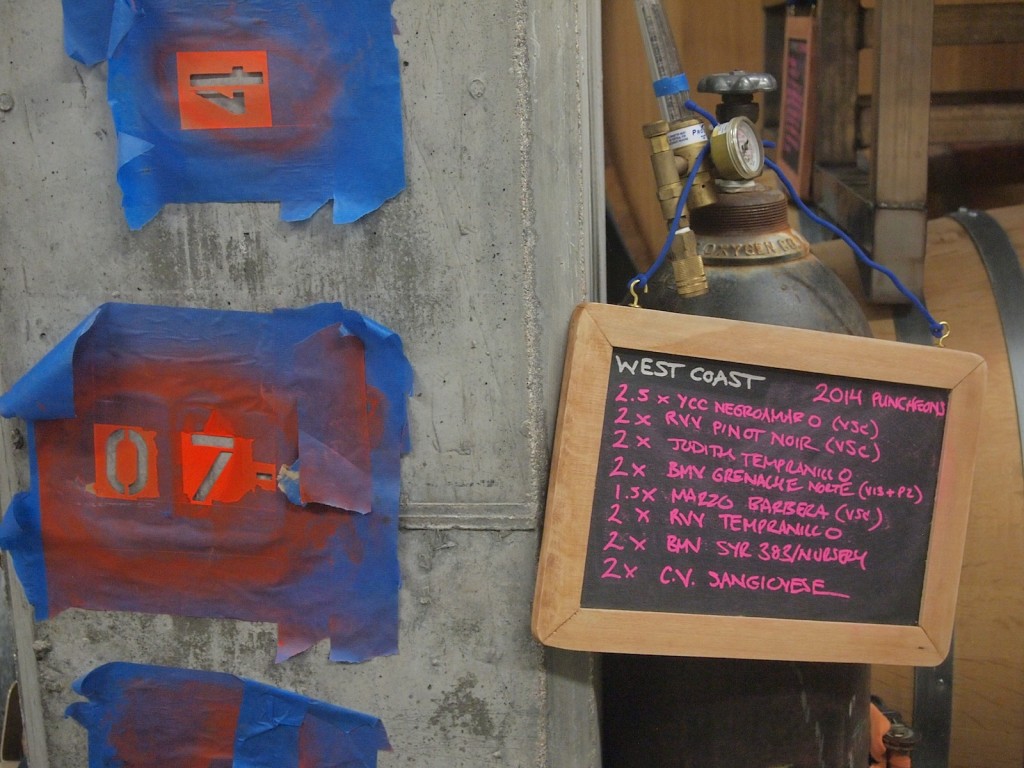 4
07-
OXYGEN CO.
WEST COAST
2014 PUNCHEONS
2.5 x YCC NEGROAMARO (VSC)
2 x RVV PINOT NOIR (VSC)
2 x JUDITH TEMPRANILLO
2 x BMV GRENACHE NORTE (VIS + P2)
1.5 x MARZO BARBERA (VSC)
2 x RVV TEMPRANILLO
2 x BMV SYR 383/NURSERY
2 x C.V. SANGIOVESE